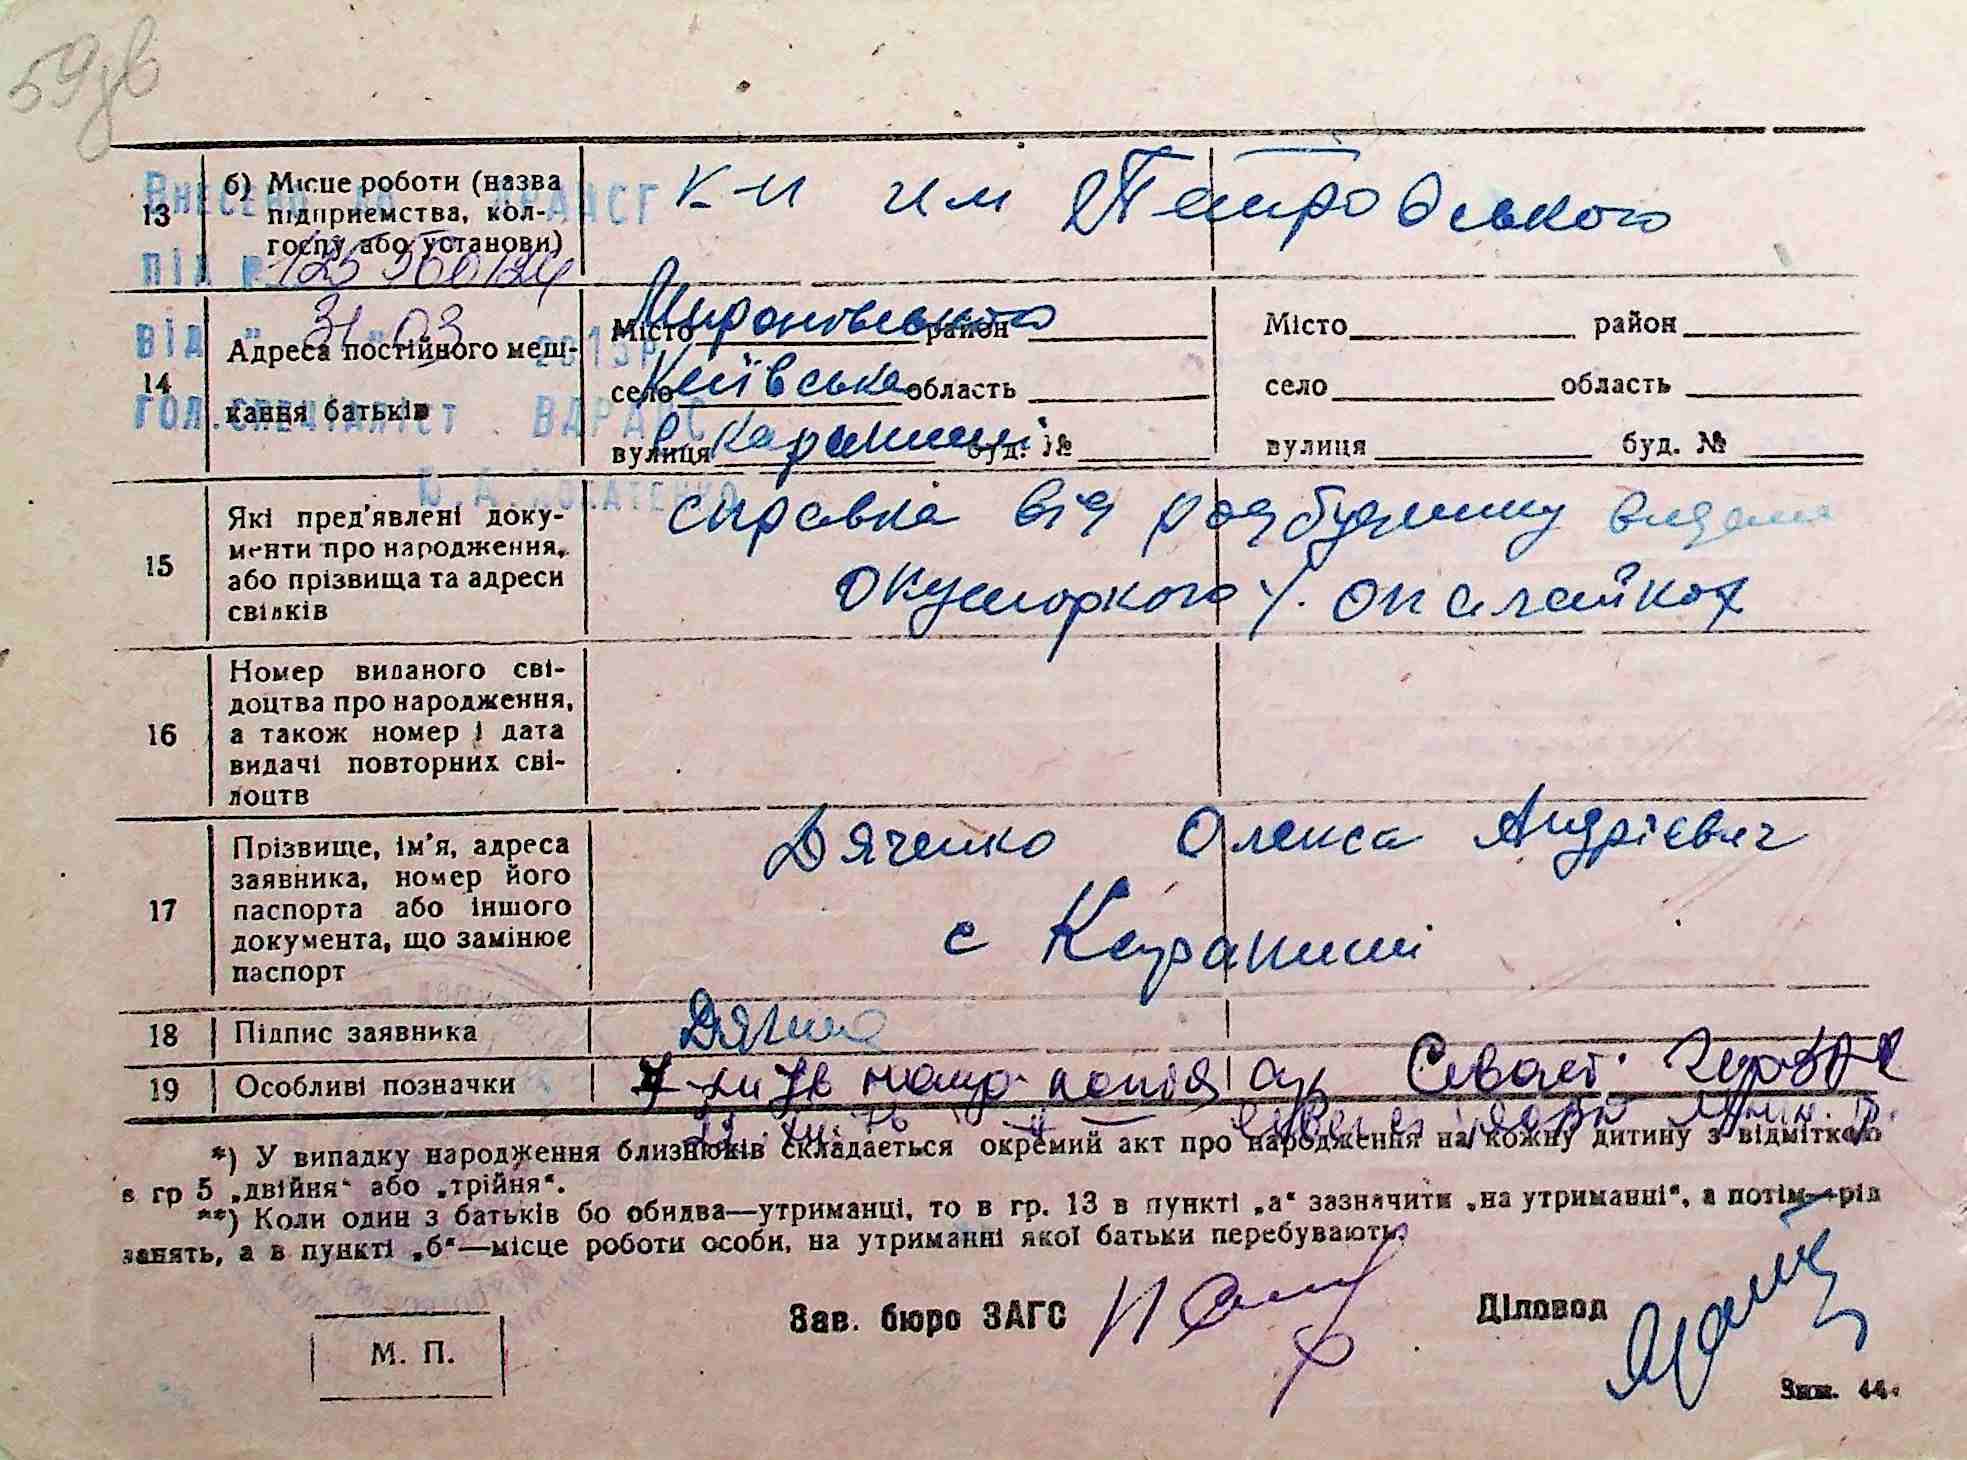 59 зв
13
б) Місце роботи (назва підприємства, колгоспу або установи)
к-п им Петровського
Внесено до ДРАЦСГ
під №
від " 31 " 03 2013р
гол.спеціаліст ВДРАЦС
14
Адреса постійного мешкання батьків
Місто район
Миронівського
село область
Київська
вулиця буд. №
с Карапиші
Місто район
село область
вулиця буд. №
15
Які пред'явлені документи про народження, або прізвища та адреси свідків
справка від родбудинку видана
16
Номер виданого свідоцтва про народження, а також номер і дата видачі повторних свідоцтв
17
Прізвище, ім'я, адреса заявника, номер його паспорта або іншого документа, що замінює паспорт
Дяченко Олекса Андрієвич
с Карапиші
18
Підпис заявника
19
Особливі позначки
*) У випадку народження близнюків складається окремий акт про народження на кожну дитину з відміткою
в гр 5 „двійня“ або „трійня“.
**) Коли один з батьків бо обидва—утриманці, то в гр. 13 в пункті „а“ зазначити „на утриманні“, а потім—рід
занять, а в пункті „б“—місце роботи особи, на утриманні якої батьки перебувають.
Зав. бюро ЗАГС
Діловод
М. П.
Зам. 44